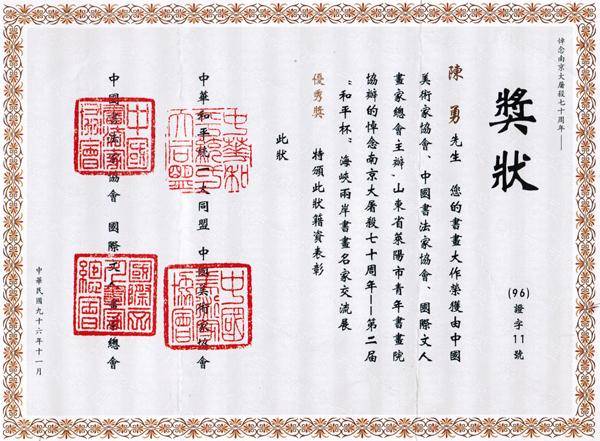 悼念南京大屠殺七十周年——
獎狀
(96)證字11號
陳勇先生 您的書畫大作榮獲由中國
美術家協會、中國書法家協會、國際文人
畫家總會主辦,山東省萊陽市青年書畫院
協辦的悼念南京大屠殺七十周年——第二屆
"和平杯"海峽兩岸書畫名家交流展
優秀獎 特頒此狀籍資表彰
此狀
中華和平統一大同盟 中國美術家協會
中國書法家協會 國際文人畫家總會
中華民國九十六年十一月